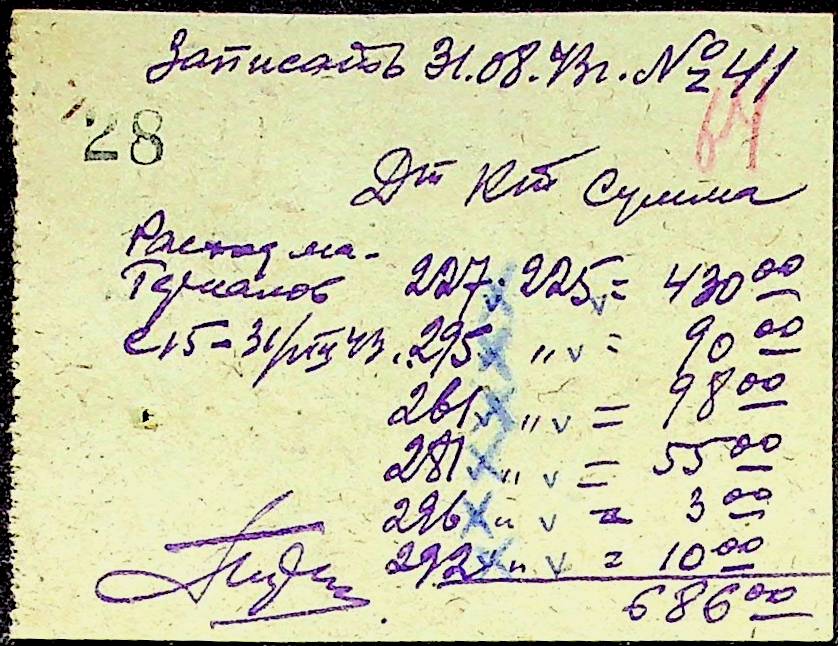 Записать 31.08.43г. № 41
28
Дт Кт Сумма
Расход ма-
териалов 227 225 = 430 00
с 15-31/VIII 43. 295 " = 90 00
261 " = 98 00
281 " = 55 00
296 " = 3 00
292 " = 10 00
686 00